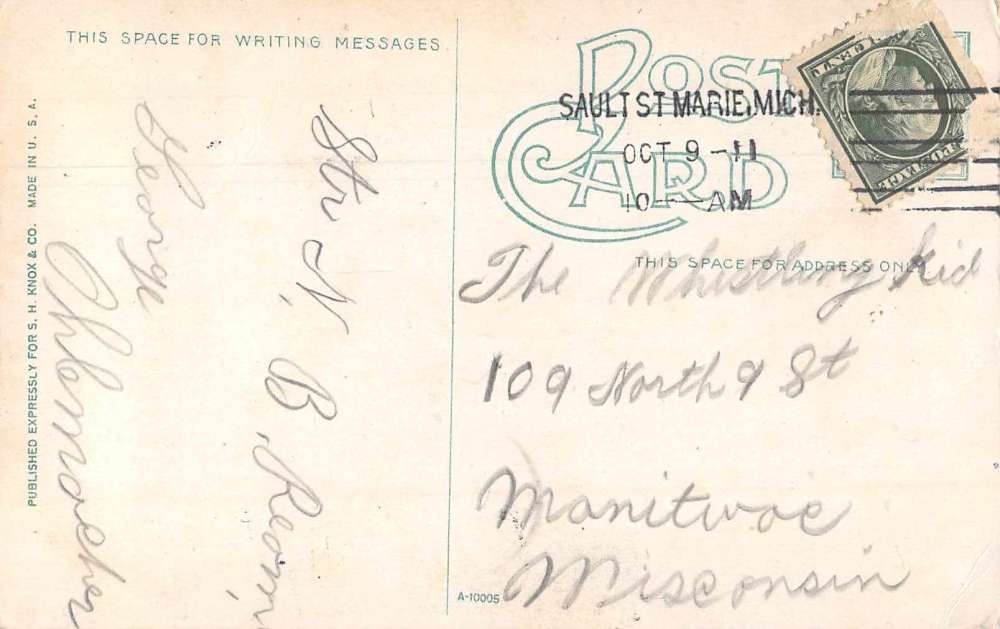 THIS SPACE FOR WRITING MESSAGES
POST
CARD
SAULT ST MARIE, MICH.
OCT 9 - 11
10 - AM
THIS SPACE FOR ADDRESS ONLY
The Whistling Kid
109 North 9 St
Manitwoc
Wisconsin
Str N. B. Ream
George
PUBLISHED EXPRESSLY FOR S. H. KNOX & CO. MADE IN U. S. A.
A-10005